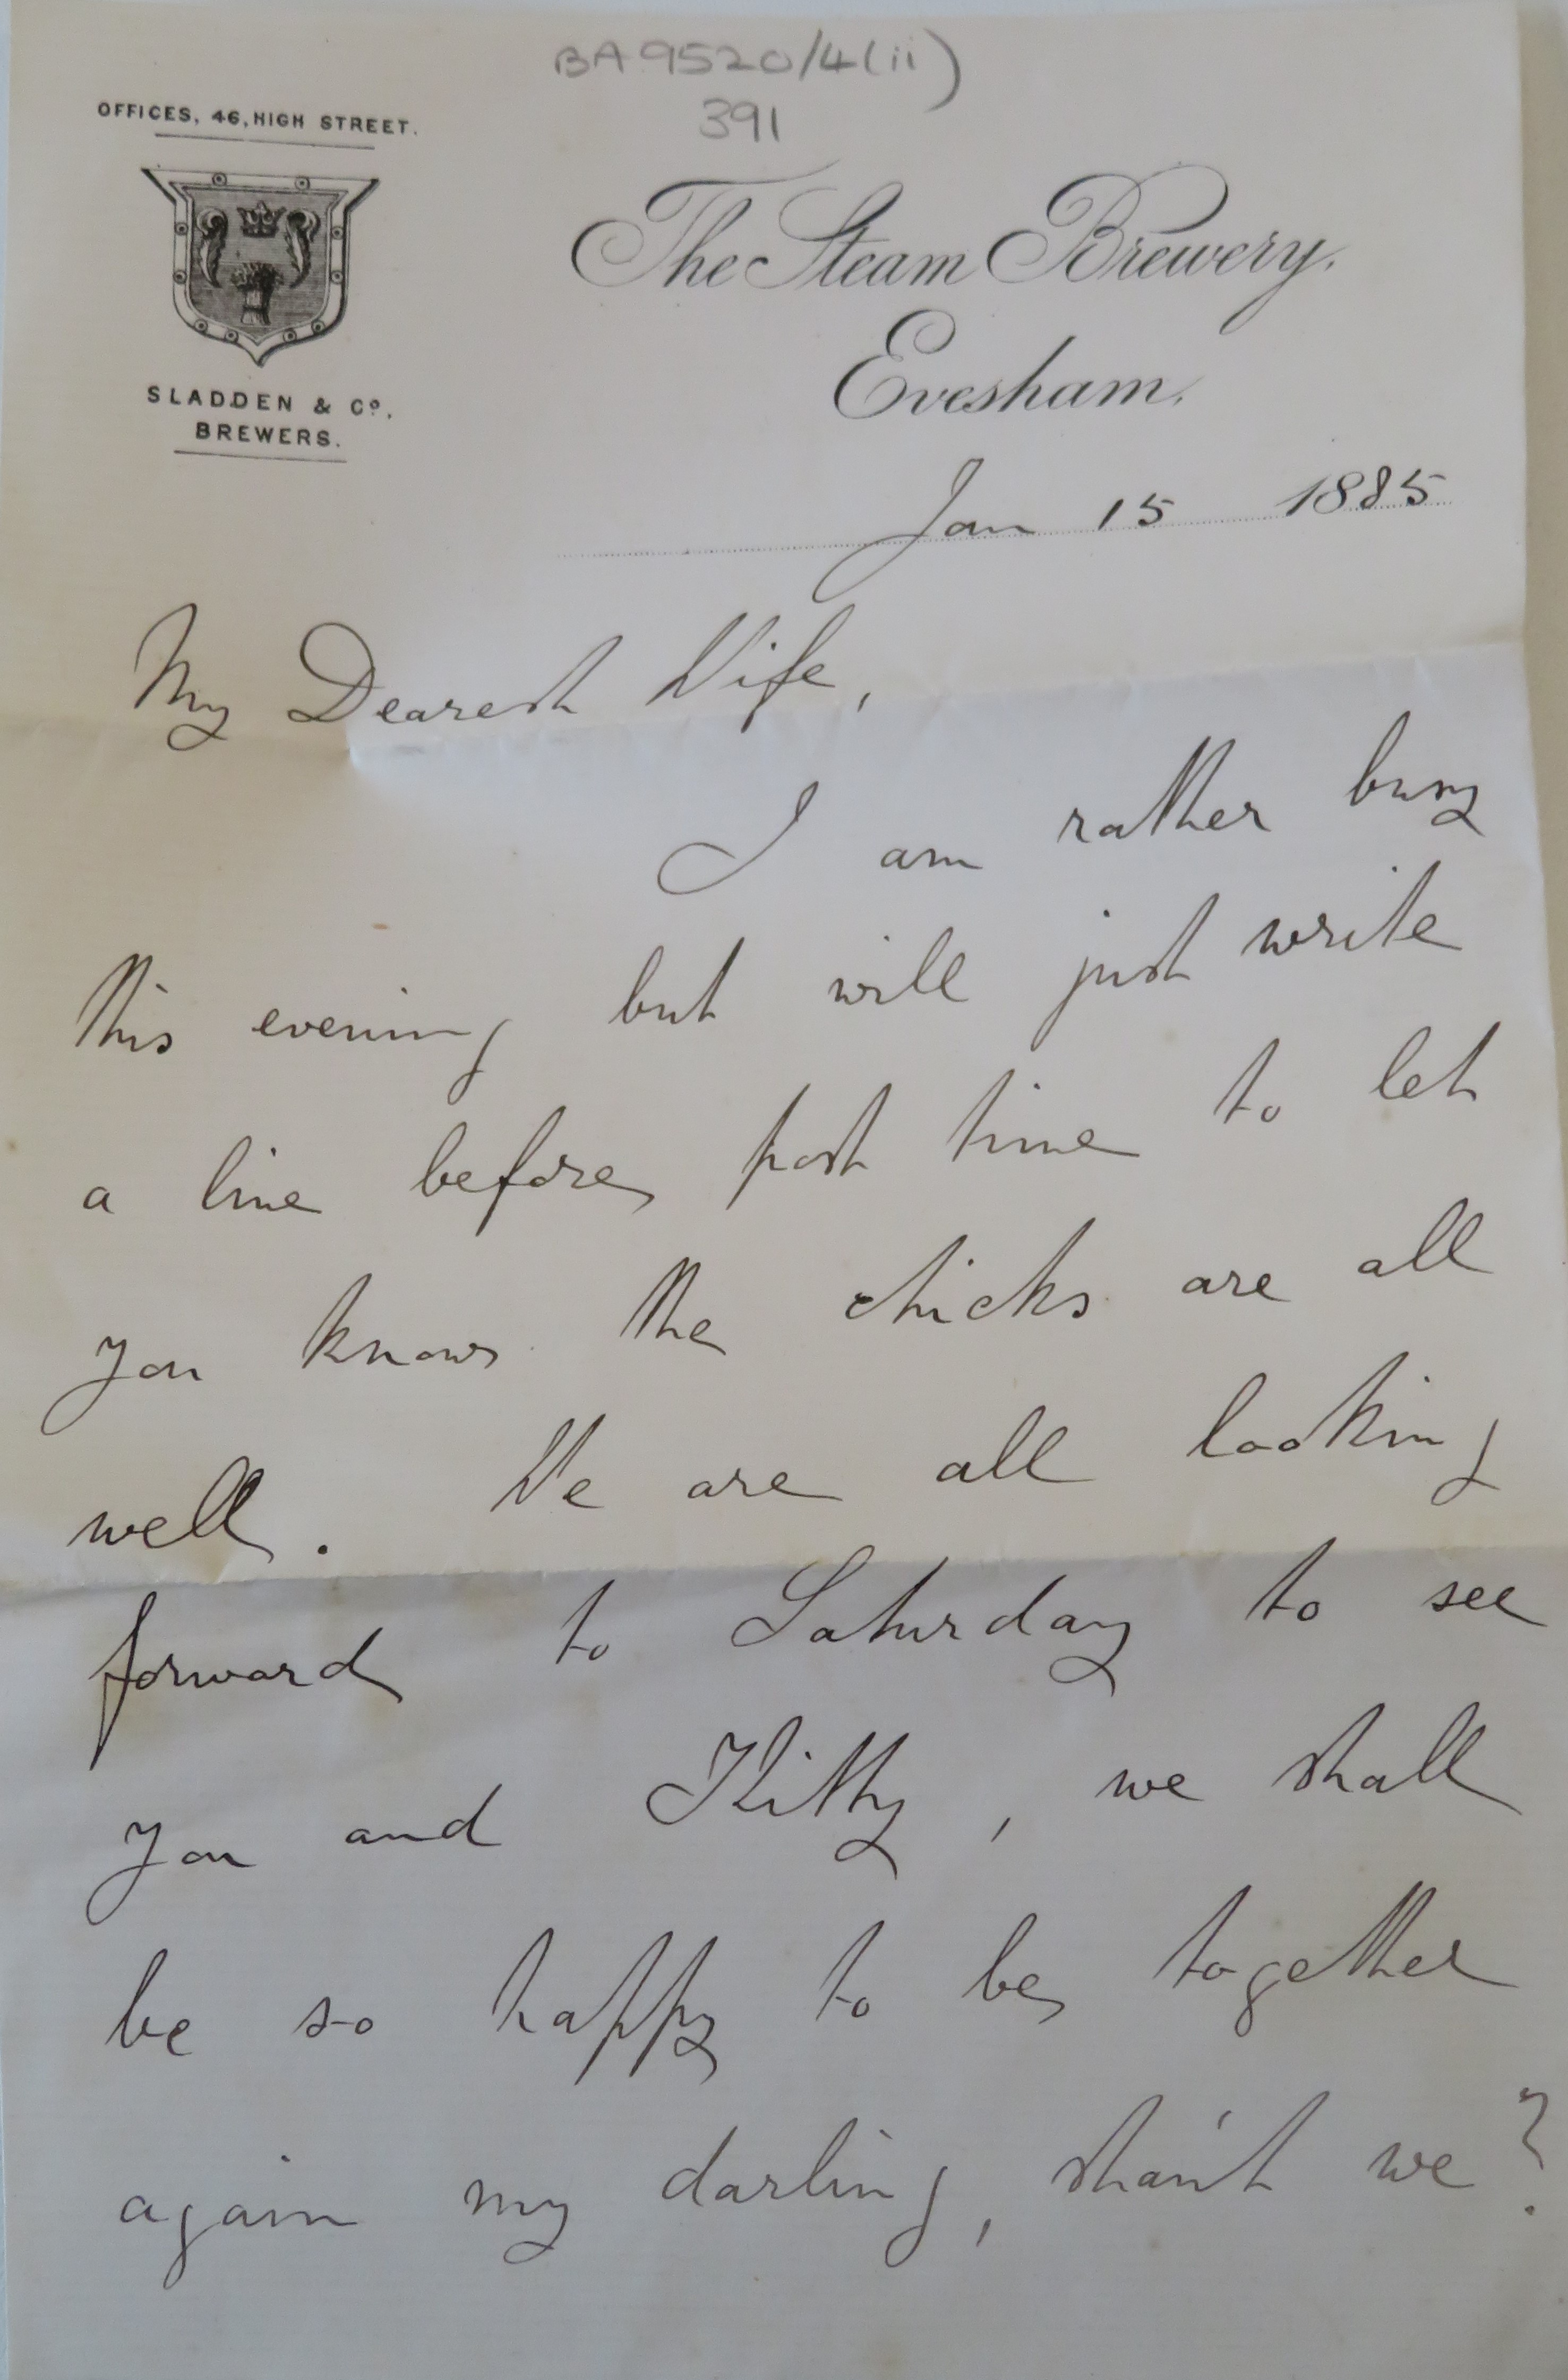 BA 9520/4(ii)
391
OFFICES, 46, HIGH STREET.
SLADDEN & Co.
BREWERS.
The Steam Brewery,
Evesham,
Jan 15 1885
My Dearest Wife,
I am rather busy
this evening but will just write
a line before post time to let
you know the chicks are all
well. We are all looking
forward to Saturday to see
you and Kitty, we shall
be so happy to be together
again my darling, shan't we?